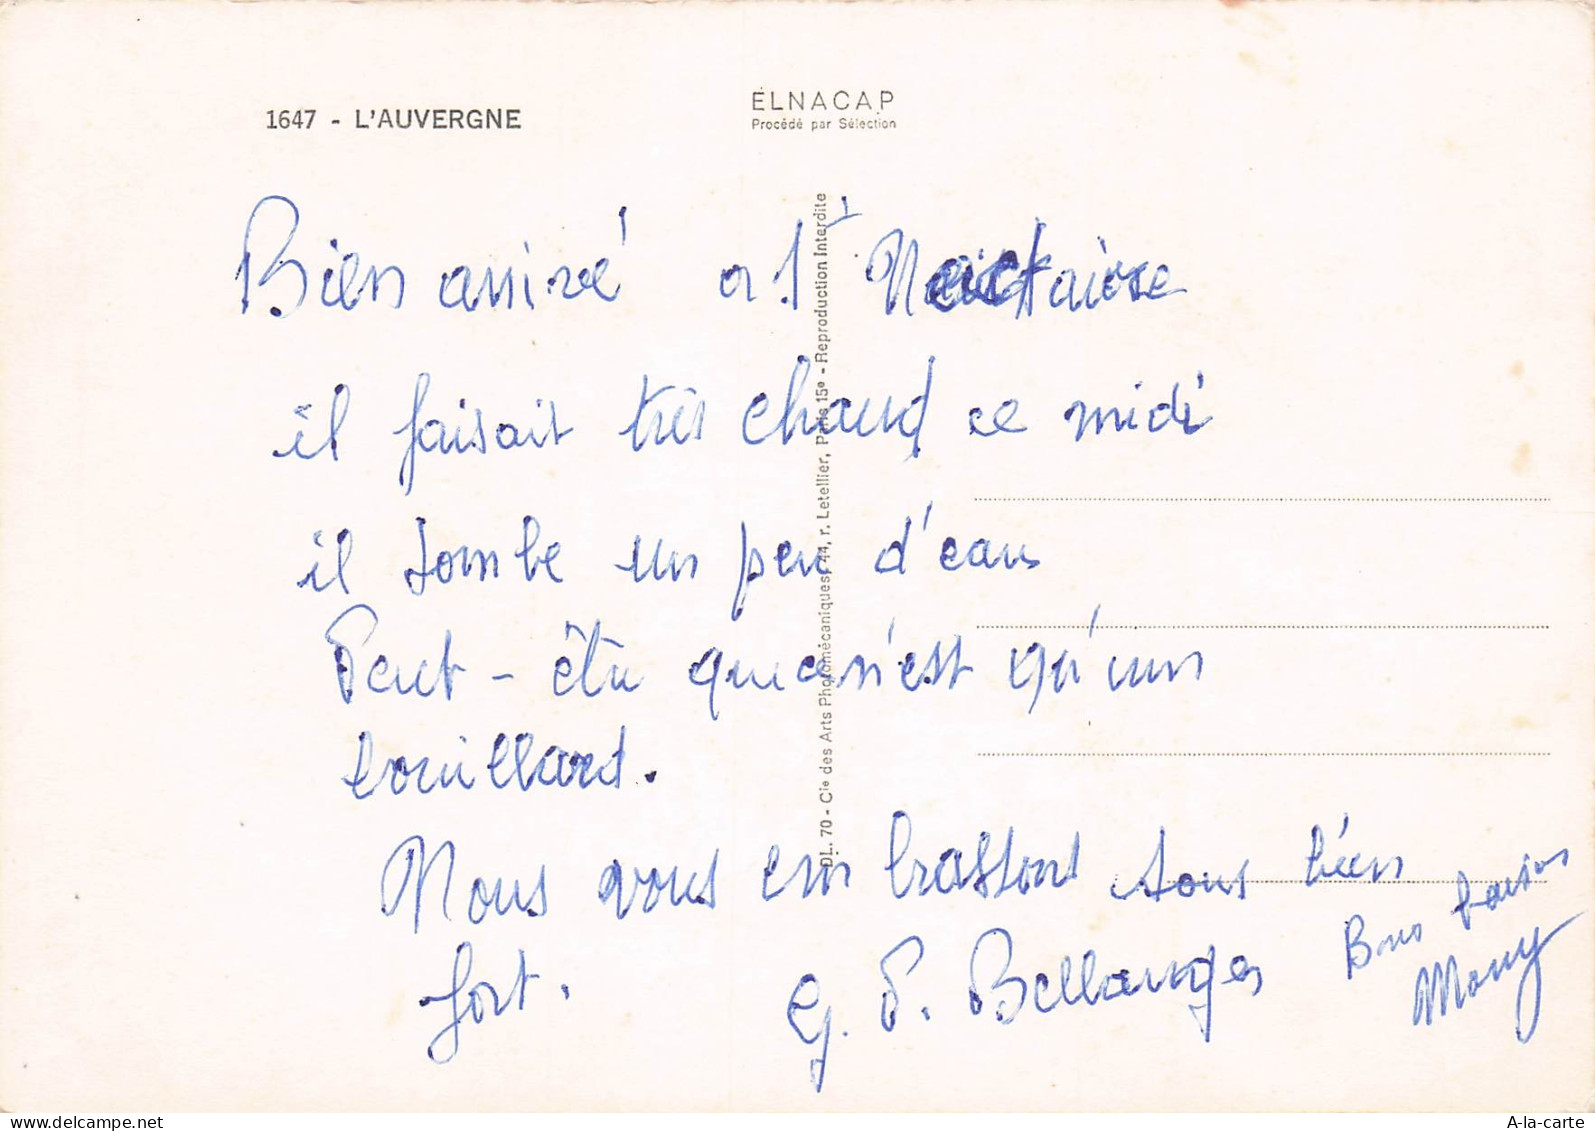 1647 - L'AUVERGNE
ÉLNACAP
Procédé par Sélection
DL. 70 - Cie des Arts Photomécaniques, 44, r. Letellier, Paris 15e - Reproduction Interdite
Bien arrivé a St Nectaire
il faisait très chaud ce midi
il tombe un peu d'eau
Peut-être que ce n'est qu'un
brouillard.
Nous vous embrassons tous bien
fort.
G. P. Bellanger
Bons baisers
Mony
A-la-carte
delcampe.net